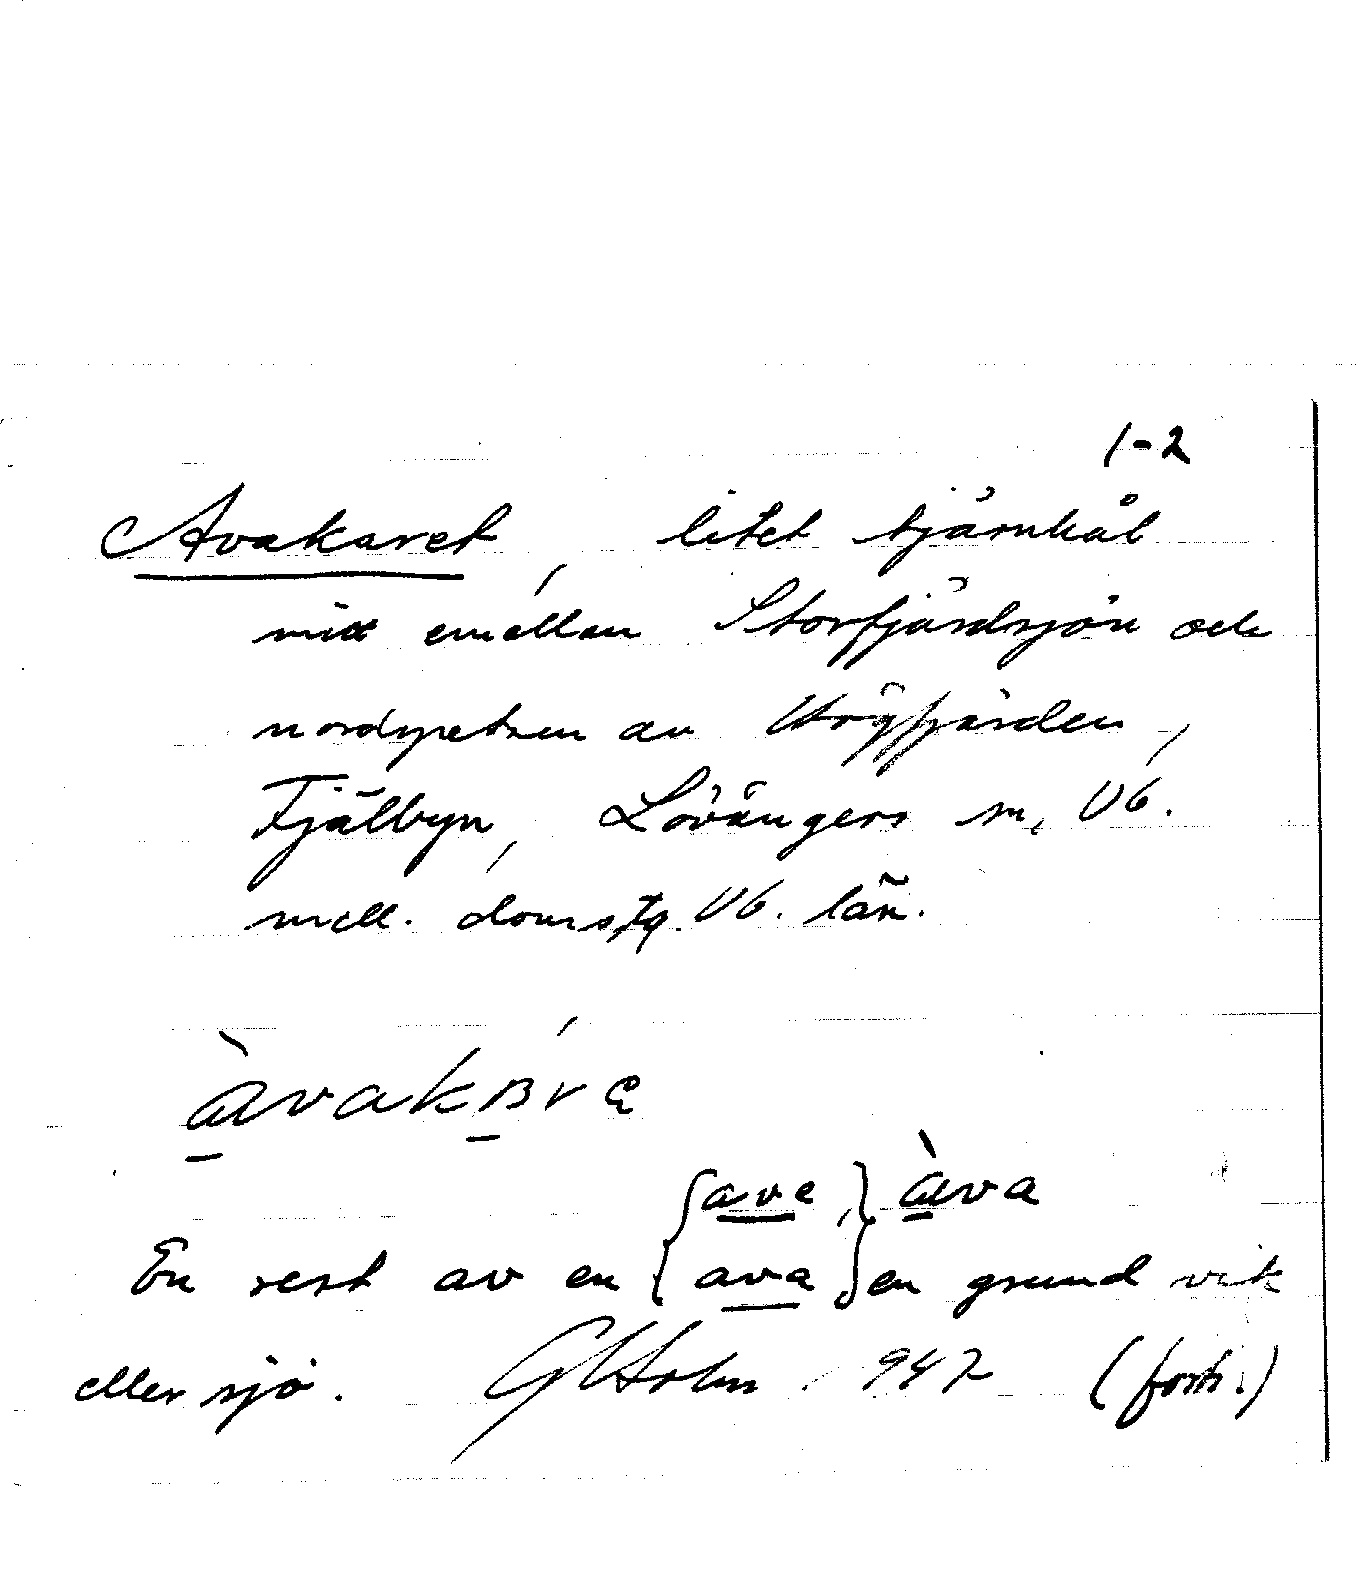 1-2
Avakaret, litet tjärnhål
mitt emellan Storfjärdsjön och
nordspetsen av Högfjärden,
Fjälbyn, Lövångers sn, Vb.
mell. domstg. Vb. län.
àvakʙrę
{ave,} àva
En rest av en {ava} en grund vik
eller sjö. G Holm 1947 (forts.)